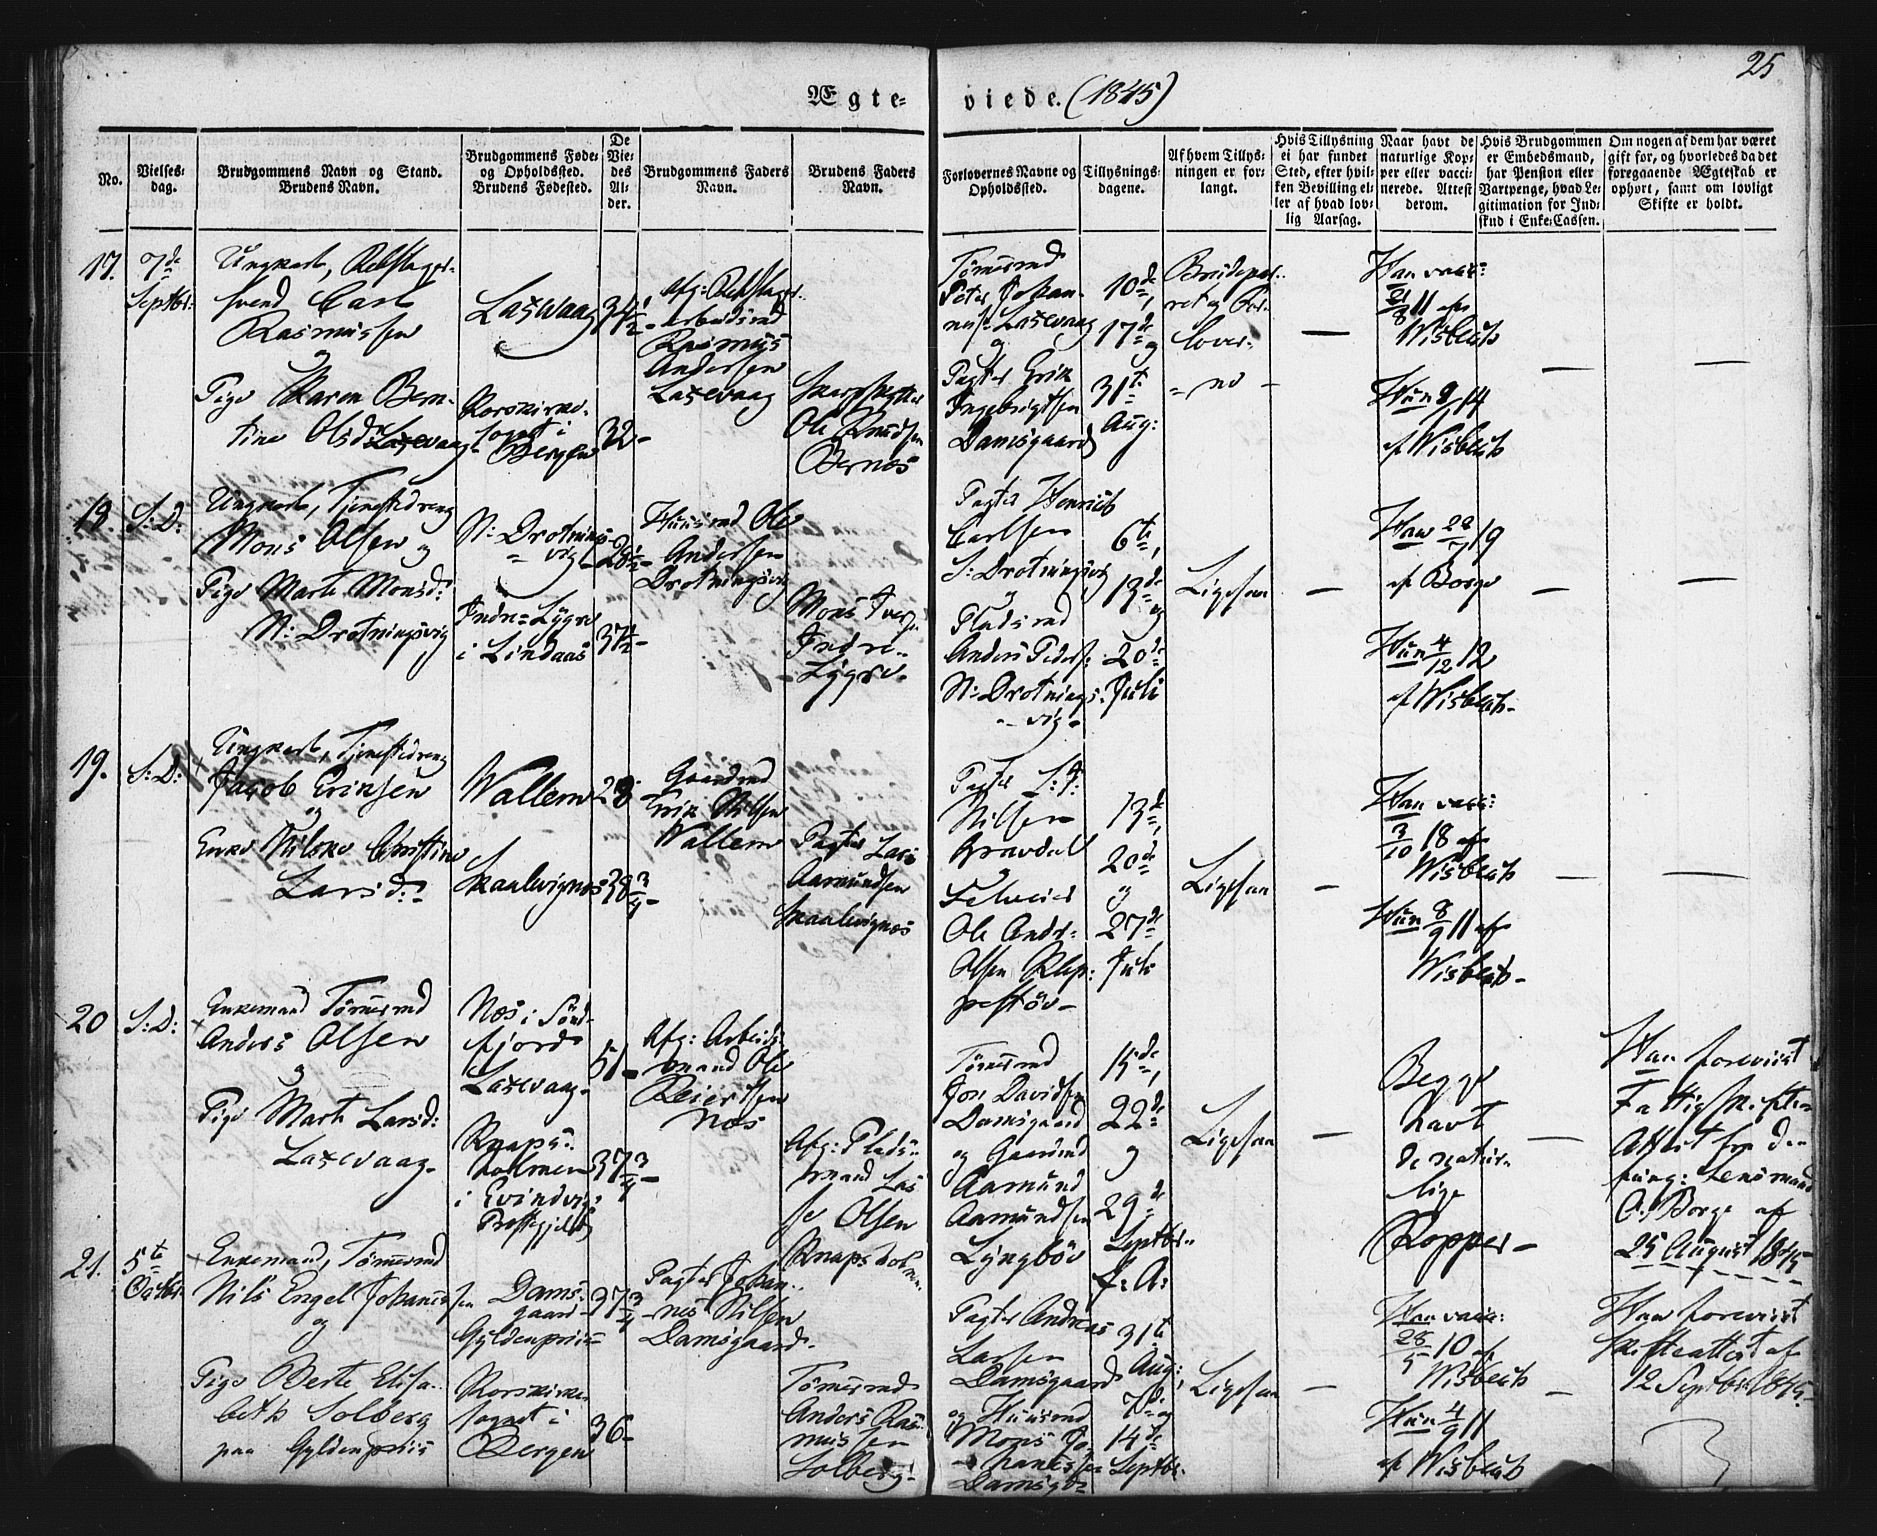 25
Ægte- viede. (1845)
No.
Vielses-
dag.
Brudgommens Navn og Stand.
Brudens Navn.
Brudgommens Føde-
og Opholdssted.
Brudens Fødested.
De
Vie-
des
Al-
der.
Brudgommens Faders
Navn.
Brudens Faders
Navn.
Forlovernes Navne og
Opholdssted.
Tillysnings-
dagene.
Af hvem Tillys-
ningen er for-
langt.
Hvis Tillysning
ei har fundet
Sted, efter hvil-
ken Bevilling el-
ler af hvad lov-
lig Aarsag.
Naar havt de
naturlige Kop-
per eller vacci-
nerede. Attest
derom.
Hvis Brudgommen
er Embedsmand,
har Pension eller
Vartpenge, hvad Le-
gitimation for Ind-
skud i Enke-Cassen.
Om nogen af dem har været
gift før, og hvorledes da det
foregaaende Ægteskab er
ophørt, samt om lovligt
Skifte er holdt.
17.
7de
Septbr:
Ungkarl, Rebslager-
svend Carl
Rasmussen
og
Pige Karen Bern-
tine Olsd: Laxevaag
Laxevaag
Korskirke-
sognet i
Bergen
34½
32-
Afg: Rebslager-
arbeidsmd
Rasmus
Andersen
Laxevaag
Ole Knudsen
Bernæs
Tømmermd
Peter Johan-
nes: Laxevaag
og
Pagter Erik
Ingebrigtsen
Damsgaard
10de,
17de
og
31te
Aug:
Brudepar-
ret og For-
lover-
ne -
Han vacc:
21/8 11 af
Wisbech
Hun 9/1 14
af Wisbech
18.
S: D:
Ungkarl, Tjenestedreng
Mons Olsen og
Pige Marte Monsd:
N: Drotningsvig
N: Drotnings-
vig
Indre-Lygre
i Lindaas
28½-
37½-
Huusmd Ole
Andersen
Drotningsvig
Mons Ivers:
Indre-
Lygre.
Pagter Henrich
Carlsen
S: Drotningsvig
og
Pladsmd
Anders Peders:
N: Drotnings-
vig-
6te,
13de
og
20de
Juli
Ligesaa
Han 28/7 19
af Borge
Hun 4/12 12
af Wisbech-
19.
S: D:
Ungkarl, Tjenestedreng
Jacob Erichsen
og
Enke Nilske Christine
Larsd:
Wallem
Skaalvignæs
28
38¾-
Gaardmd
Erik Nilsen
Wallem
Pagter Lars
Aamundsen
Skaalvignæs
Pagter
Nilsen
Gravdal
og
Ole Andr-
Olsen Klep-
pestøv-
13de,
20de
og
27de
Juli
Ligesaa
Han vacc:
3/10 18 af
Wisbech
Hun 8/9 11 af
Wisbech-
20
S: D:
Enkemand Tømmermd
Anders Olsen
og
Pige Marte Larsd:
Laxevaag.
Næs i Sønd-
fjord
Laxevaag-
Knaps-
holmen
i Evindvigs
Præstgjeld
51-
37¾-
Afg: Arbeids-
mand Ole
Reiersen
Næs
Afg: Plads-
mand Las-
se Olsen
Knapsholmen
Tømmermd
Jon Davidsen
Damsgaard
og Gaardmd
Aamund
Aamundsen
Lyngbøv
15de,
22de
og
29de
Septbr:
f: A:
Ligesaa
Begge
havt
de natur-
lige
Kopper-
Han foreviist
Fattig Skifte-
Attest fra
Lensmand
O: Borge af
25 August 1845
21.
5te
Octbr:
Enkemand, Tømmermd
Nils Engel Johannessen
og
Pige Berte Elisa-
beth Solberg
paa Gyldenpriis
Dams-
gaard
Gyldenpriis
Korskirke-
sognet i
Bergen
37¾
36-
Pagter Johan-
nes Nilsen
Damsgaard.
Tømmermd
Anders Ras-
mussen
Solberg
Pagter Andreas
Larsen
Damsgaard
og Huusmd
Mons Jo-
hannessen
Damsgd
31te
Aug:,
7de og
14de
Septbr.
Ligesaa
Han vacc:
28/5 10 af
Wisbech
Hun 4/9 11
af Wisbech
Han foreviist
Skifteattest af
12 Septbr 1845.